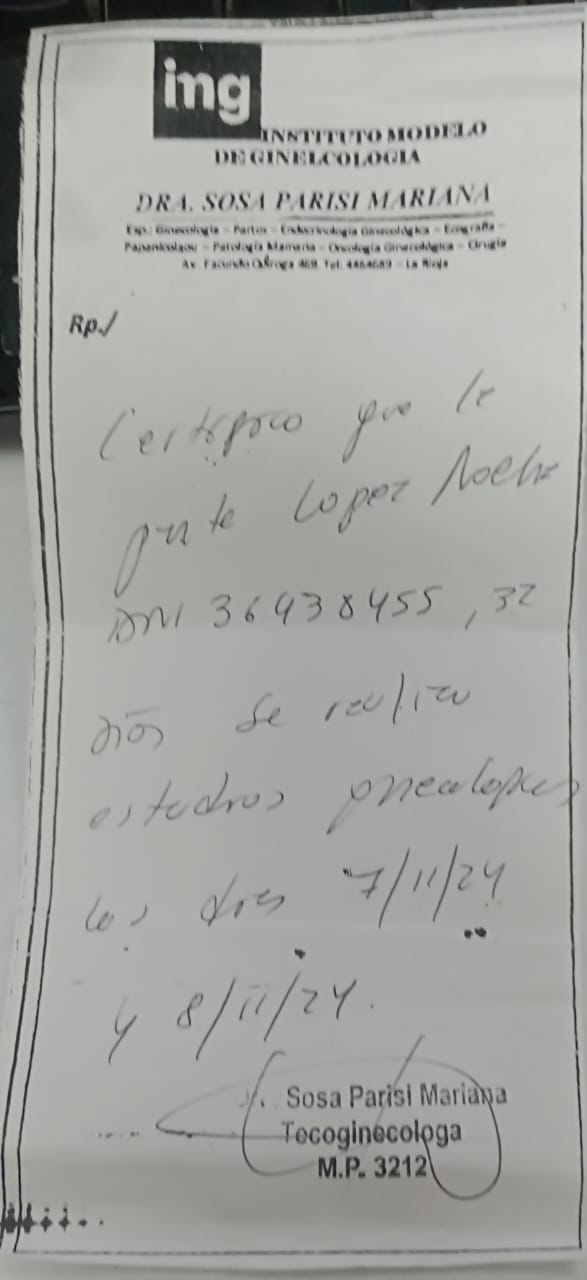 img
INSTITUTO MODELO
DE GINELCOLOGIA
DRA. SOSA PARISI MARIANA
Esp.: Ginecología – Partos – Endocrinología Ginecológica – Ecografía –
Papanicolaou – Patología Mamaria – Oncología Ginecológica – Cirugía
Av. Facundo Quiroga 469 Tel: 4464689 – La Rioja
Rp./
Certifico que la
pte Lopez Noelia
DNI 36438455, 32
años se realizo
estudios ginecologicos
los dias 7/11/24
y 8/11/24.
Sosa Parisi Mariana
Tocoginecologa
M.P. 3212